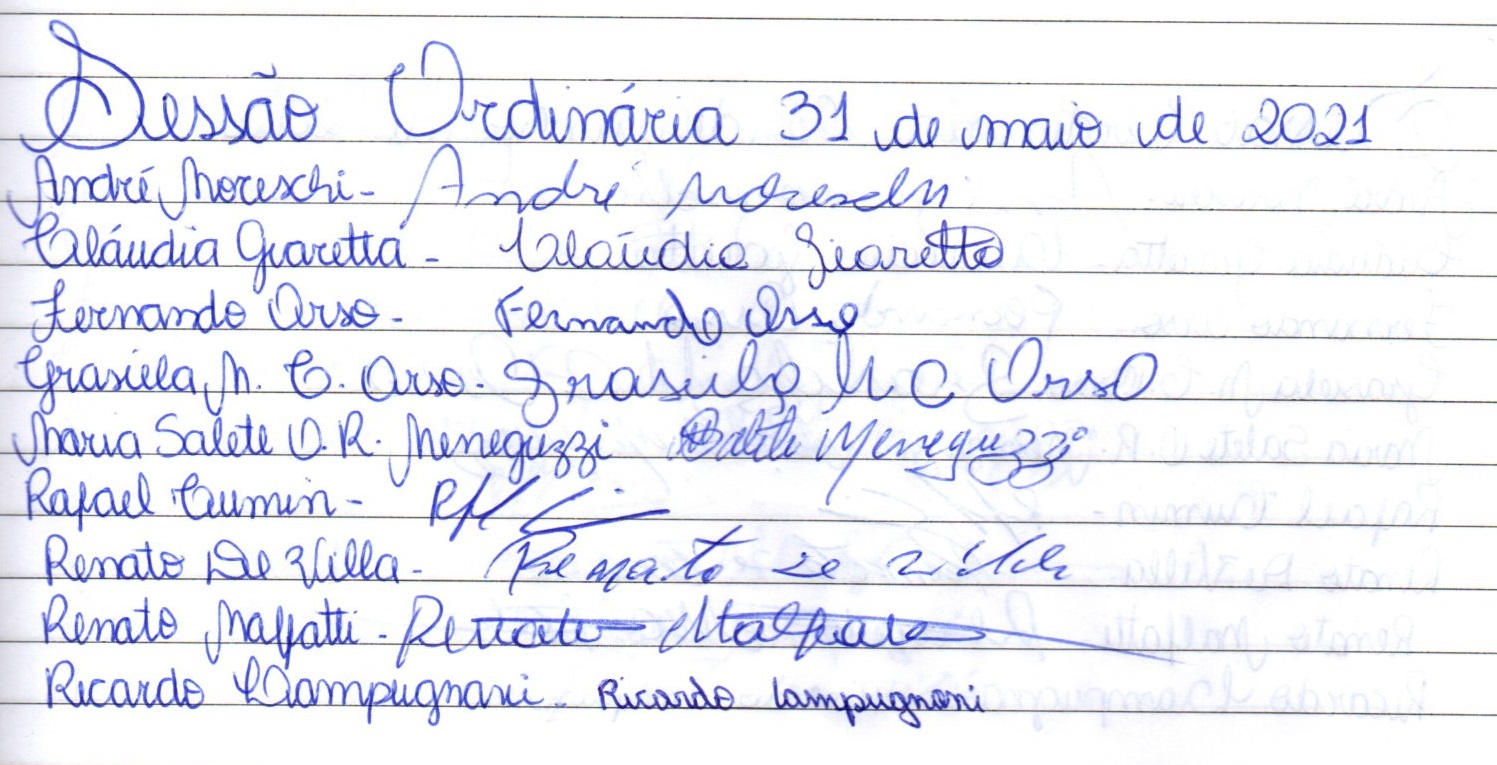 Sessão Ordinária 31 de maio de 2021
André Moreschi - André Moreschi
Cláudia Giaretta - Claúdia Giaretta
Fernando Orso - Fernando Orso
Grasiela M. C. Orso - Grasiela M C Orso
Maria Salete O. R. Meneguzzi Salete Meneguzzi
Rafael Cumin -
Renato De Villa - Renato de villa
Renato Malfatti - Renato Malfatti
Ricardo Lampugnani - Ricardo Lampugnani